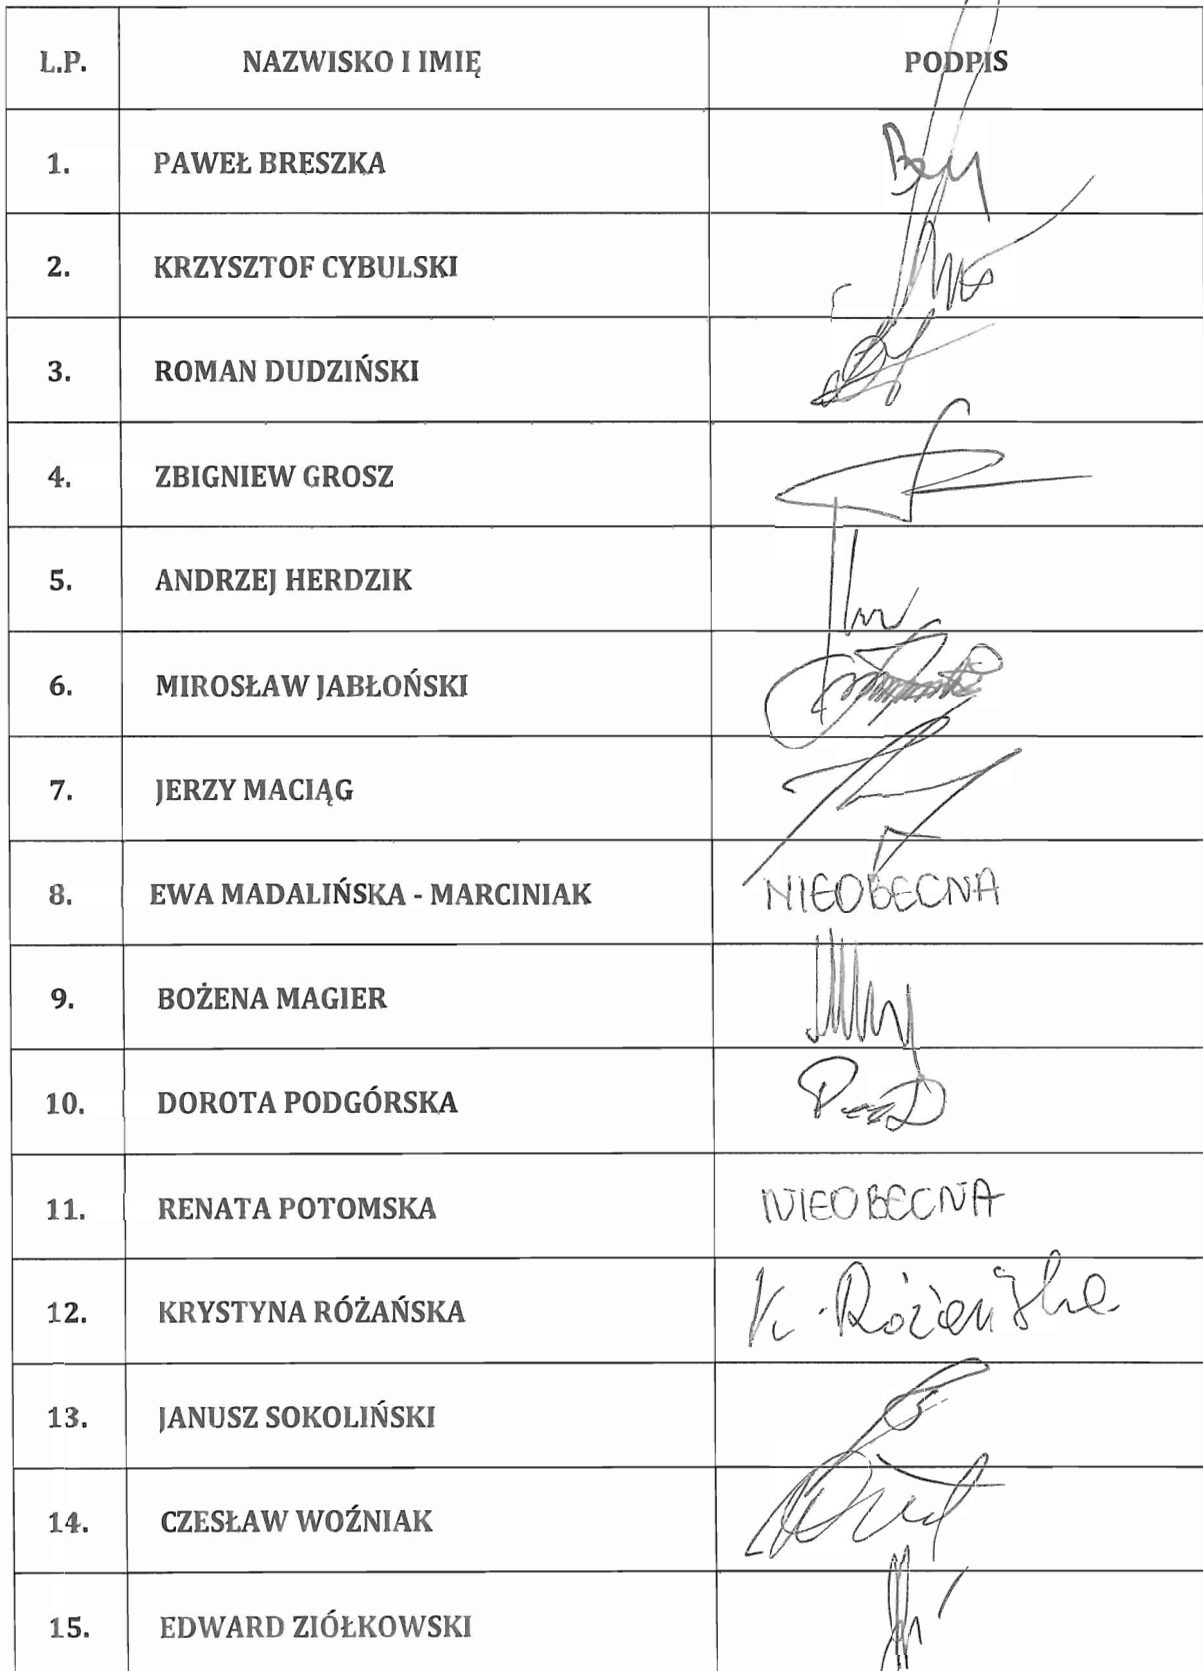 L.P. NAZWISKO I IMIĘ PODPIS
1. PAWEŁ BRESZKA
2. KRZYSZTOF CYBULSKI
3. ROMAN DUDZIŃSKI
4. ZBIGNIEW GROSZ
5. ANDRZEJ HERDZIK
6. MIROSŁAW JABŁOŃSKI
7. JERZY MACIĄG
8. EWA MADALIŃSKA - MARCINIAK NIEOBECNA
9. BOŻENA MAGIER
10. DOROTA PODGÓRSKA
11. RENATA POTOMSKA NIEOBECNA
12. KRYSTYNA RÓŻAŃSKA K. Różańska
13. JANUSZ SOKOLIŃSKI
14. CZESŁAW WOŹNIAK
15. EDWARD ZIÓŁKOWSKI